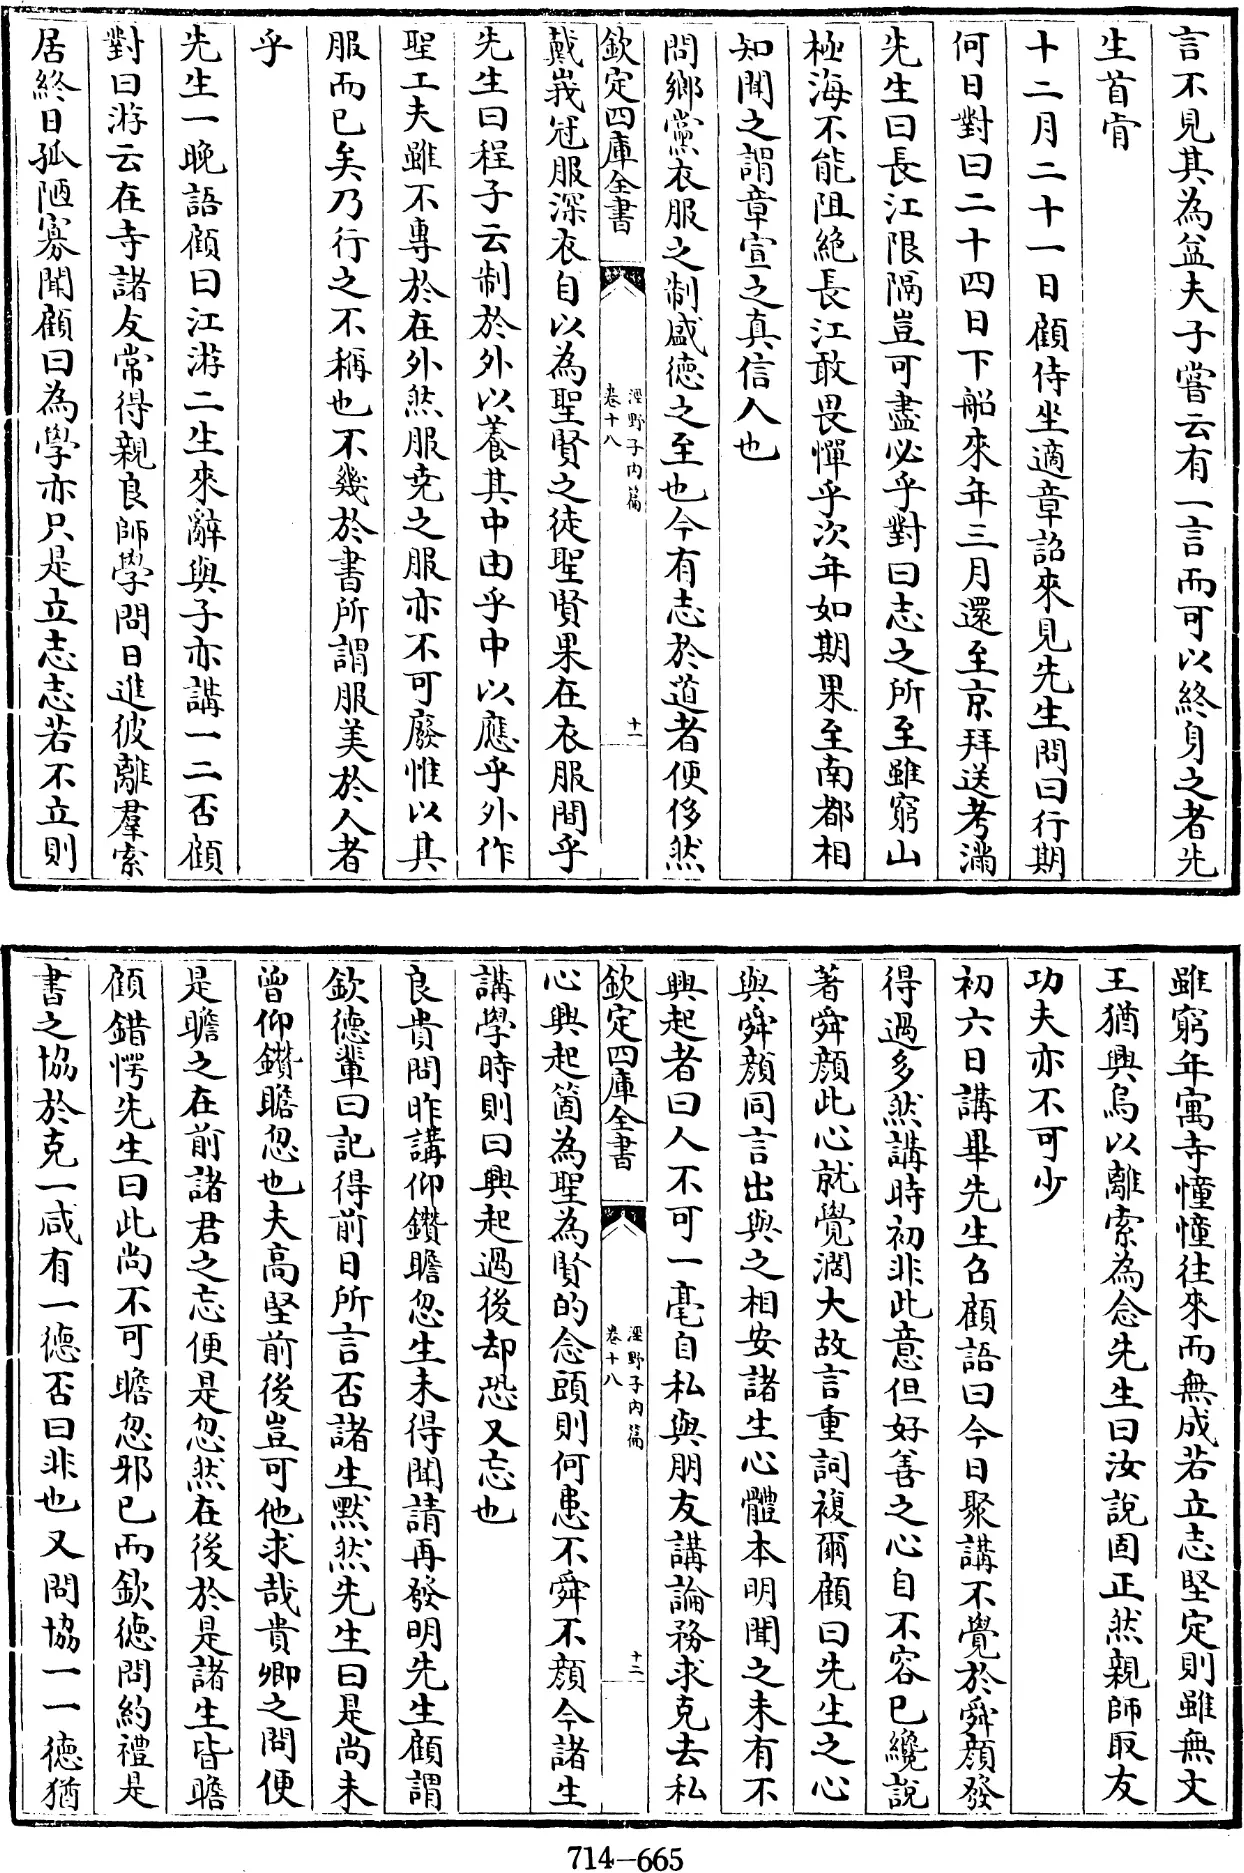 言不見其為盆夫子嘗云有一言而可以終身之者先
生首肯
十二月二十一日顧侍坐適章詔來見先生問曰行期
何日對曰二十四日下船來年三月還至京拜送考滿
先生曰長江限隔豈可盡必乎對曰志之所至雖窮山
極海不能阻絶長江敢畏憚乎次年如期果至南都相
知聞之謂章宣之真信人也
問鄉黨衣服之制盛徳之至也今有志於道者便侈然
欽定四庫全書
涇野子内篇
卷十八
十一
戴峩冠服深衣自以為聖賢之徒聖賢果在衣服間乎
先生曰程子云制於外以養其中由乎中以應乎外作
聖工夫雖不專於在外然服尭之服亦不可廢惟以其
服而已矣乃行之不稱也不幾於書所謂服美於人者
乎
先生一晚語顧曰江游二生來辭與子亦講一二否顧
對曰游云在寺諸友常得親良師學問日進彼離羣索
居終日孤陋寡聞顧曰為學亦只是立志志若不立則
雖窮年寓寺憧憧往來而無成若立志堅定則雖無文
王猶興烏以離索為念先生曰汝說固正然親師取友
功夫亦不可少
初六日講畢先生召顧語曰今日聚講不覺於舜顔發
得過多然講時初非此意但好善之心自不容已纔說
著舜顔此心就覺濶大故言重詞複爾顧曰先生之心
與舜顔同言出與之相安諸生心體本明聞之未有不
興起者曰人不可一毫自私與朋友講論務求克去私
欽定四庫全書
涇野子内篇
卷十八
十二
心興起箇為聖為賢的念頭則何患不舜不顔今諸生
講學時則曰興起過後却恐又忘也
良貴問昨講仰鑽瞻忽生未得聞請再發明先生顧謂
欽徳輩曰記得前日所言否諸生黙然先生曰是尚未
曾仰鑽瞻忽也夫高堅前後豈可他求哉貴卿之問便
是瞻之在前諸君之忘便是忽然在後於是諸生皆瞻
顧錯愕先生曰此尚不可瞻忽邪已而欽徳問約禮是
書之協於克一咸有一徳否曰非也又問協一一徳猶
714—665